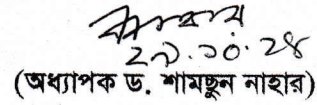 ২৯.১০.২৪
(অধ্যাপক ড. শামছুন নাহার)